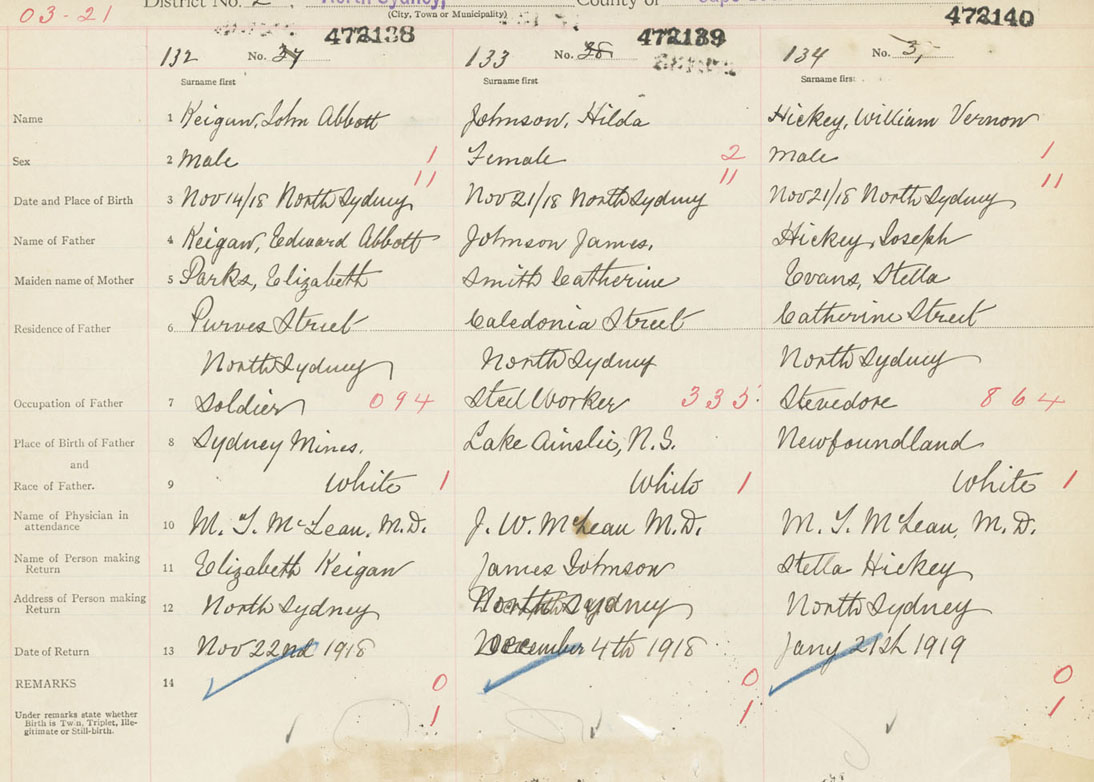 03-21 District No. 2, North Sydney, County of Cape
(City, Town or Municipality)
472138 472139 472140
132 No. 37 133 No. 38 134 No.
Surname first Surname first Surname first
Name 1 Keigan, John Abbott Johnson, Hilda Hickey, William Vernon
Sex 2 Male 1 Female 2 Male 1
11 11 11
Date and Place of Birth 3 Nov 14/18 North Sydney Nov 21/18 North Sydney Nov 21/18 North Sydney
Name of Father 4 Keigan, Edward Abbott Johnson James, Hickey, Joseph
Maiden name of Mother 5 Parks, Elizabeth Smith Catherine Evans, Stella
Residence of Father 6 Purves Street Caledonia Street Catherine Street
North Sydney North Sydney North Sydney
Occupation of Father 7 Soldier 094 Steel Worker 335 Stevedore 864
Place of Birth of Father 8 Sydney Mines. Lake Ainslie, N.S. Newfoundland
and
Race of Father. 9 White 1 White 1 White 1
Name of Physician in
attendance 10 M. T. McLean, M.D. J. W. McLean M.D. M. T. McLean, M.D.
Name of Person making
Return 11 Elizabeth Keigan James Johnson Stella Hickey
Address of Person making
Return 12 North Sydney North Sydney North Sydney
Date of Return 13 Nov 22nd 1918 December 4th 1918 Jany 21st 1919
REMARKS 14 0 0 0
1 1 1
Under remarks state whether
Birth is Twin, Triplet, Ille-
gitimate or Still-birth.